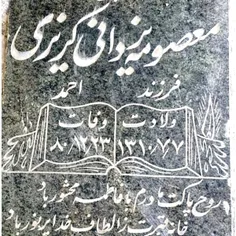 معصومه یزدانی کریزی
فرزند احمد
ولادت وفات
۱۳۱۰/۷/۷ ۸۰/۱۲/۲۳
روح پاکت مادرم با فاطمه محشور باد
خانه قبرت ز الطاف خدا پرنور باد